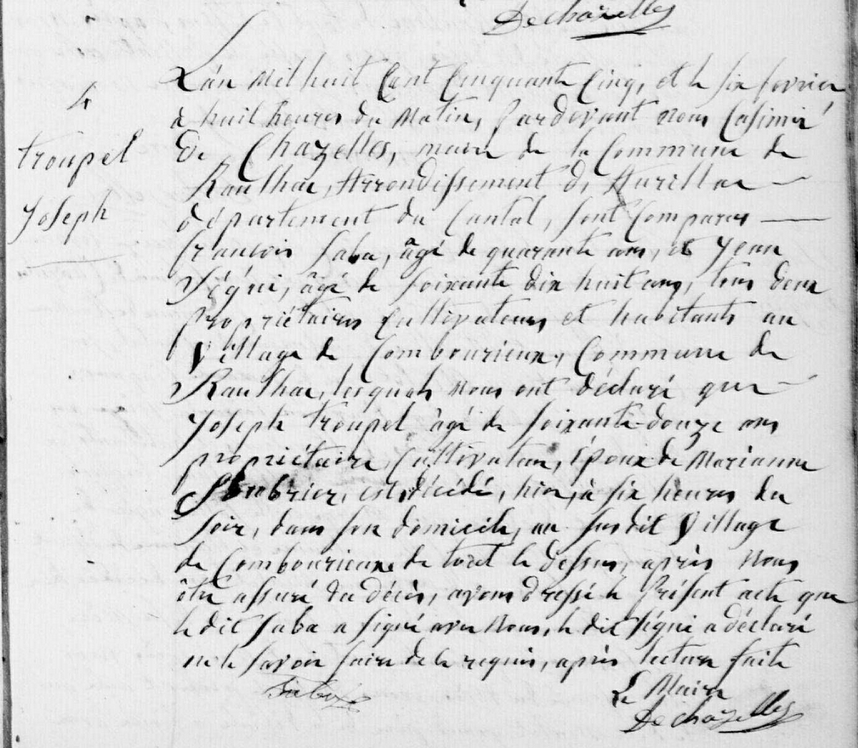 Dechazelles
4
troupel
Joseph
L'an Mil huit Cent Cinquante Cinq, et le six fevrier
a huit heures du Matin, Pardevant nous Casimir
De Chazelles, maire de la Commune de
Raulhac, Arrondissement d'Aurillac
département du Cantal, sont Comparus
francois Saba, âgé de quarante ans, et Jean
Ségui, âgé de soixante dix huit ans, tous deux
propriétaires Cultivateurs et habitants au
Village de Combourieux, Commune de
Raulhac, lesquels nous ont déclaré que
Joseph troupel âgé de soixante-douze ans
propriétaire, Cultivateur, Époux de Marianne
est décédé, hier, à six heures du
soir, dans son domicile, au susdit Village
de Combourieux de tout le dessus, après nous
être assuré du décès, avons dressé le Présent acte que
le dit Saba a signé avec Nous, le dit Ségui a déclaré
ne le savoir faire de ce requis, après lecture faite
Saba
Le Maire
Dechazelles